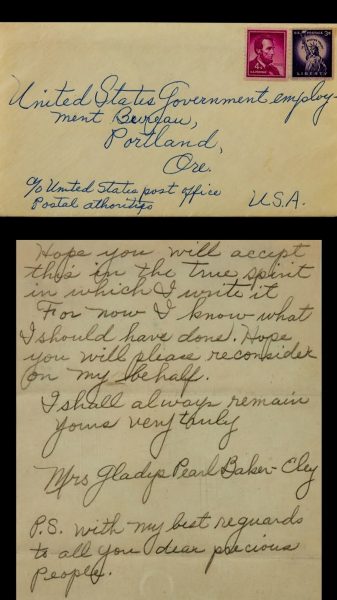 4¢ U.S. POSTAGE
U.S. POSTAGE 3¢
LIBERTY
United States Government employ-
ment Bureau,
Portland,
Ore.
c/o United States post office
Postal athorities
U.S.A.
Hope you will accept
this in the true spirit
in which I write it
For now I know what
I should have done. Hope
you will please reconsider
on my behalf.
I shall always remain
yours very truly
Mrs Gladys Pearl Baker-Eley
P.S. with my best reguards
to all you dear precious
People.